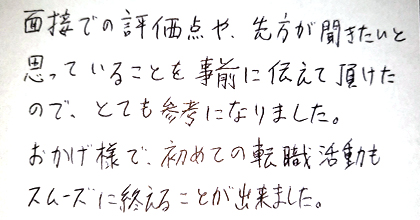 面接での評価点や、先方が聞きたいと
思っていることを事前に伝えて頂けた
ので、とても参考になりました。
おかげ様で、初めての転職活動も
スムーズに終えることが出来ました。